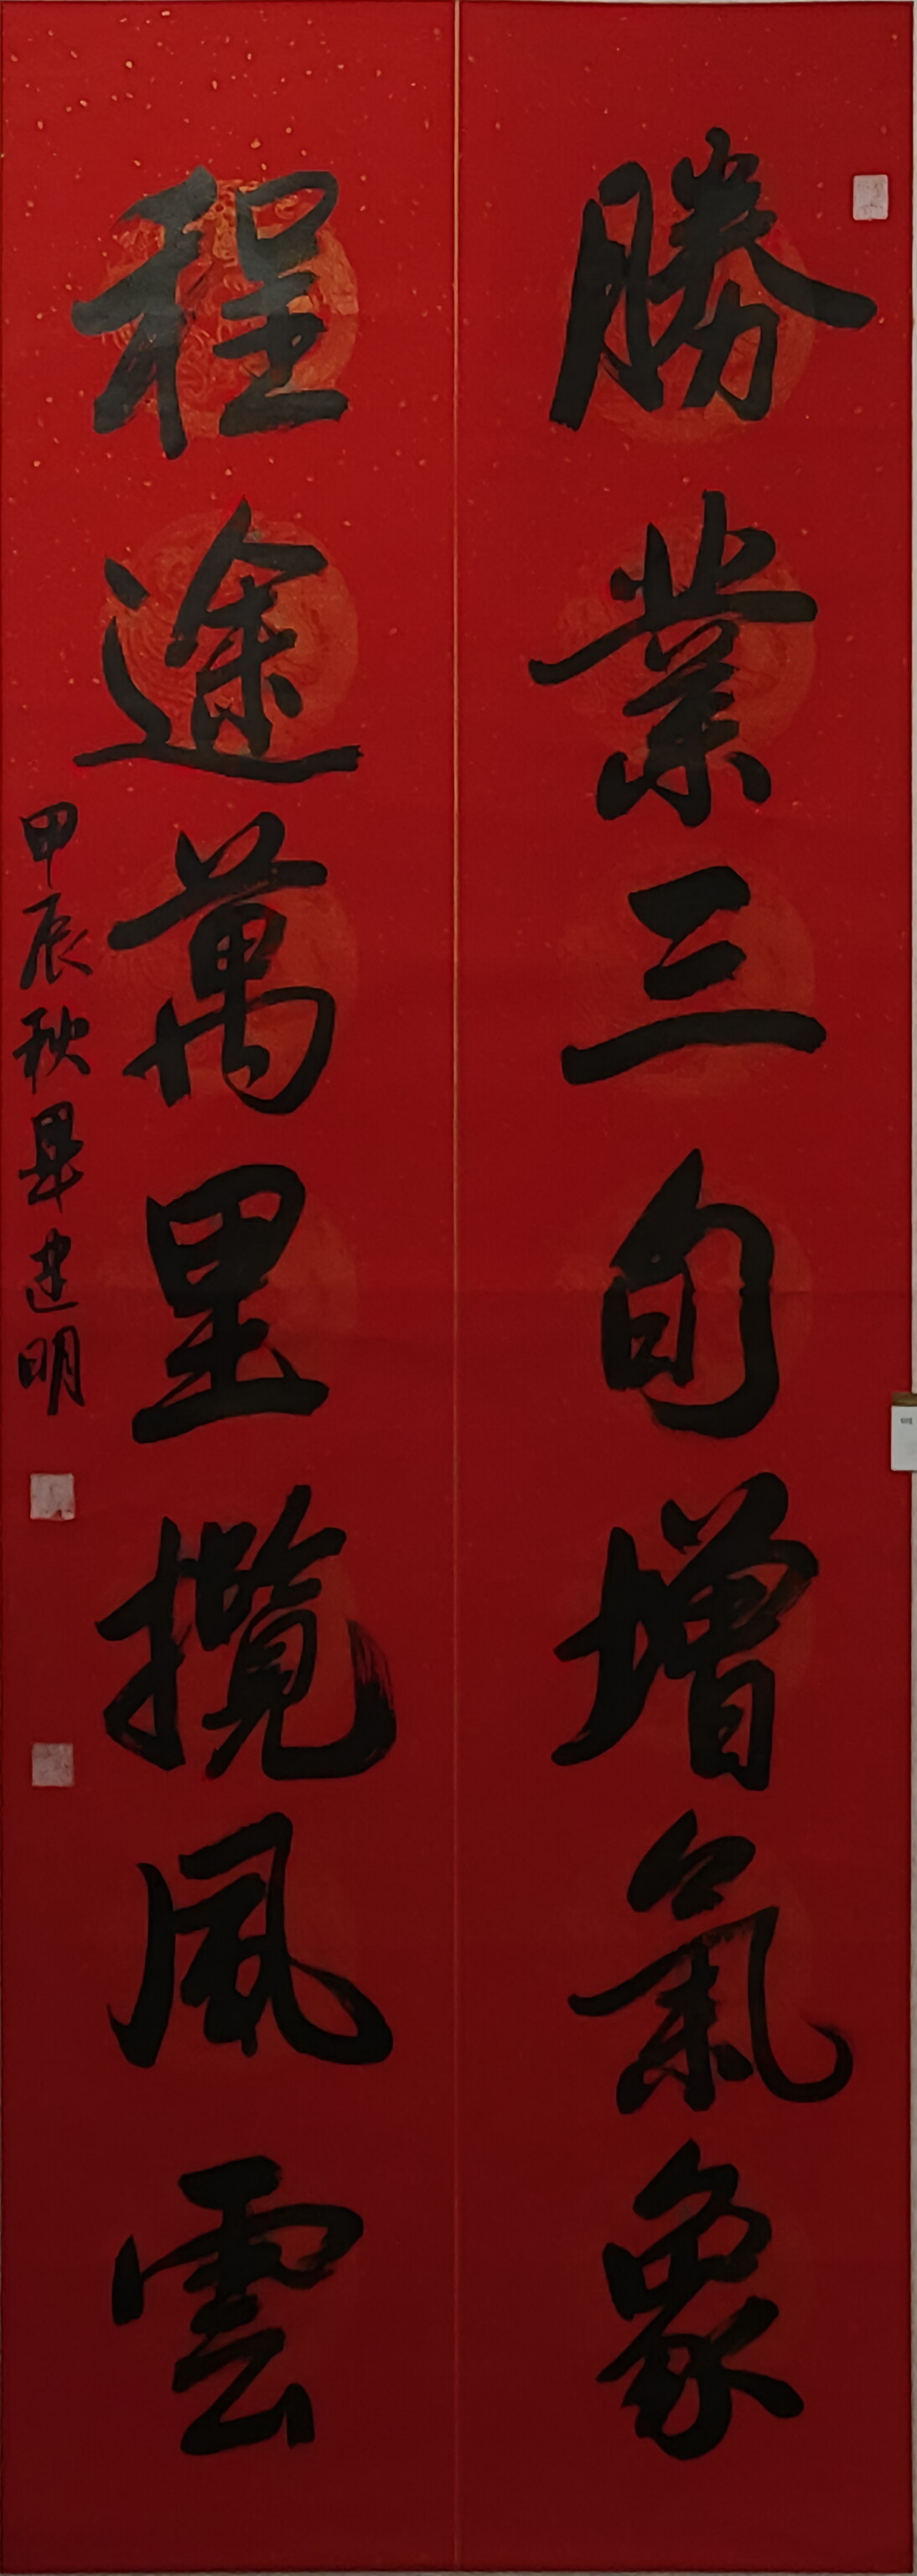 勝業三旬增氣象
程途萬里攬風雲
甲辰秋畢建明